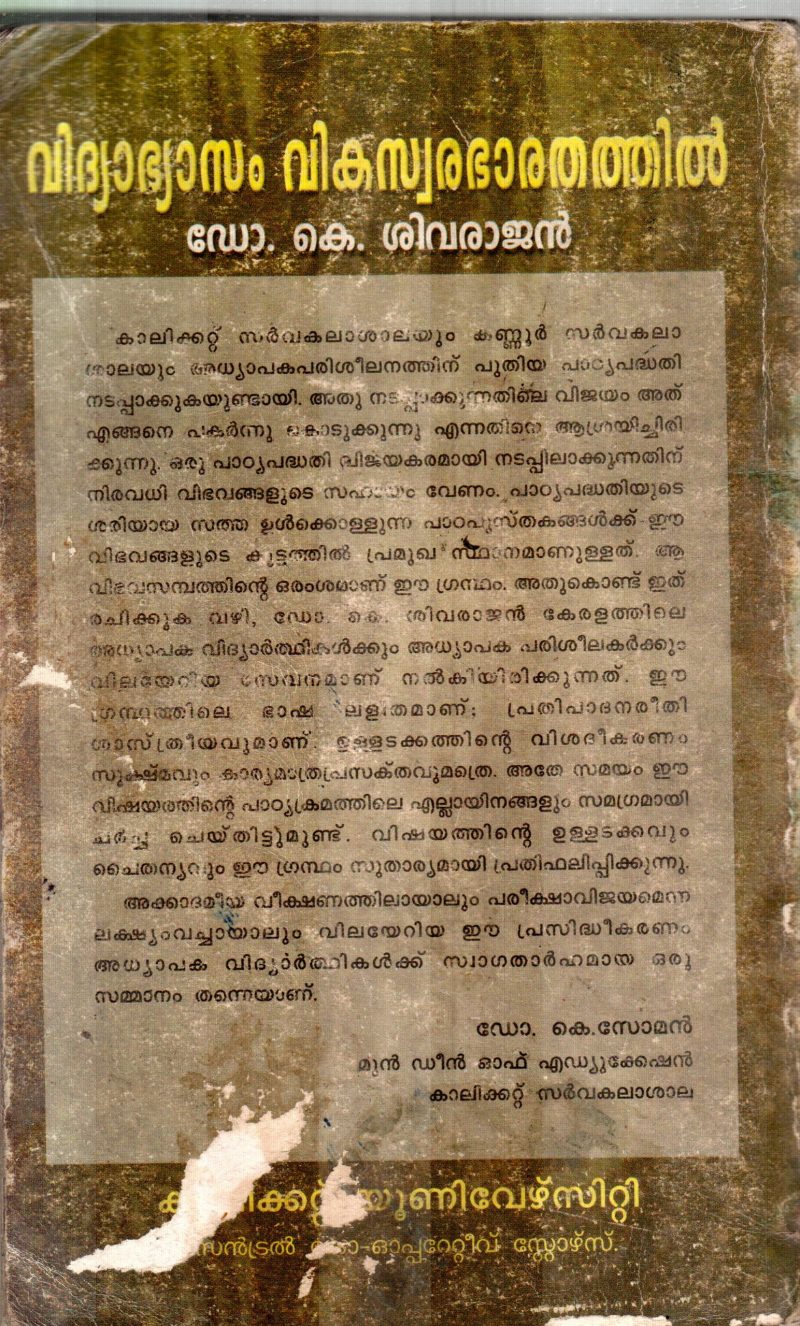 വിദ്യാഭ്യാസം വികസ്വരഭാരതത്തിൽ
ഡോ. കെ. ശിവരാജൻ
കാലിക്കറ്റ് സർവകലാശാലയും കണ്ണൂർ സർവകലാ
ശാലയും അധ്യാപകപരിശീലനത്തിന് പുതിയ പാഠ്യപദ്ധതി
നടപ്പാക്കുകയുണ്ടായി. അതു നടപ്പാക്കുന്നതിലെ വിജയം അത്
എങ്ങനെ പകർന്നു കൊടുക്കുന്നു എന്നതിനെ ആശ്രയിച്ചിരി
ക്കുന്നു. ഒരു പാഠ്യപദ്ധതി വിജയകരമായി നടപ്പിലാക്കുന്നതിന്
നിരവധി വിഭവങ്ങളുടെ സഹായം വേണം. പാഠ്യപദ്ധതിയുടെ
ശരിയായ സത്ത ഉൾക്കൊള്ളുന്ന പാഠപുസ്തകങ്ങൾക്ക് ഈ
വിഭവങ്ങളുടെ കൂട്ടത്തിൽ പ്രമുഖ സ്ഥാനമാണുള്ളത്. ആ
വിഭവസമ്പത്തിന്റെ ഒരംശമാണ് ഈ ഗ്രന്ഥം. അതുകൊണ്ട് ഇത്
രചിക്കുക വഴി, ഡോ. കെ. ശിവരാജൻ കേരളത്തിലെ
അധ്യാപക വിദ്യാർത്ഥികൾക്കും അധ്യാപക പരിശീലകർക്കും
വിലയേറിയ സേവനമാണ് നൽകിയിരിക്കുന്നത്. ഈ
ഗ്രന്ഥത്തിലെ ഭാഷ ലളിതമാണ്; പ്രതിപാദനരീതി
ശാസ്ത്രീയവുമാണ്. ഉള്ളടക്കത്തിന്റെ വിശദീകരണം
സൂക്ഷ്മവും കാര്യമാത്രപ്രസക്തവുമത്രെ. അതേ സമയം ഈ
വിഷയത്തിന്റെ പാഠ്യക്രമത്തിലെ എല്ലായിനങ്ങളും സമഗ്രമായി
ചർച്ച ചെയ്തിട്ടുമുണ്ട്. വിഷയത്തിന്റെ ഉള്ളടക്കവും
ചൈതന്യവും ഈ ഗ്രന്ഥം സുതാര്യമായി പ്രതിഫലിപ്പിക്കുന്നു.
അക്കാദമീയ വീക്ഷണത്തിലായാലും പരീക്ഷാവിജയമെന്ന
ലക്ഷ്യംവച്ചായാലും വിലയേറിയ ഈ പ്രസിദ്ധീകരണം
അധ്യാപക വിദ്യാർത്ഥികൾക്ക് സ്വാഗതാർഹമായ ഒരു
സമ്മാനം തന്നെയാണ്.
ഡോ. കെ.സോമൻ
മുൻ ഡീൻ ഓഫ് എഡ്യുക്കേഷൻ
കാലിക്കറ്റ് സർവകലാശാല
യൂണിവേഴ്സിറ്റി
സെൻട്രൽ സ്റ്റോഴ്സ്.